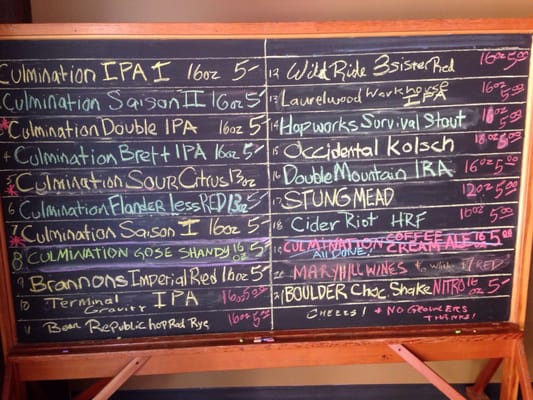 Culmination IPA I 16oz 5-
Culmination Saison II 16oz 5-
* Culmination Double IPA 16oz 5-
4 Culmination Brett IPA 16oz 5-
5 * Culmination Sour Citrus 13oz
6 Culmination Flander less RED 13oz 5-
7 * Culmination Saison I 16oz 5-
8 CULMINATION GOSE SHANDY 16oz 5-
9 Brannons Imperial Red 16oz 5-
10 Terminal Gravity IPA 16oz 5.00
11 Bear Republic hop Rod Rye 16oz 5.00
12 Wild Ride 3 sister Red 16oz 5.00
13 Laurelwood Workhouse IPA 16oz 5.00
14 Hopworks Survival Stout 16oz 5.00
15 Occidental Kolsch 16oz 5.00
16 Double Mountain IRA 16oz 5.00
17 STUNG MEAD 12oz 5.00
18 Cider Riot HRF 16oz 5.00
19 CULMINATION COFFEE CREAM ALE 16oz 5.00
All DONE!
20 MARYHILL WINES White / RED
21 BOULDER Choc. Shake NITRO 16oz 5-
CHEERS! * NO GROWLERS THANKS!